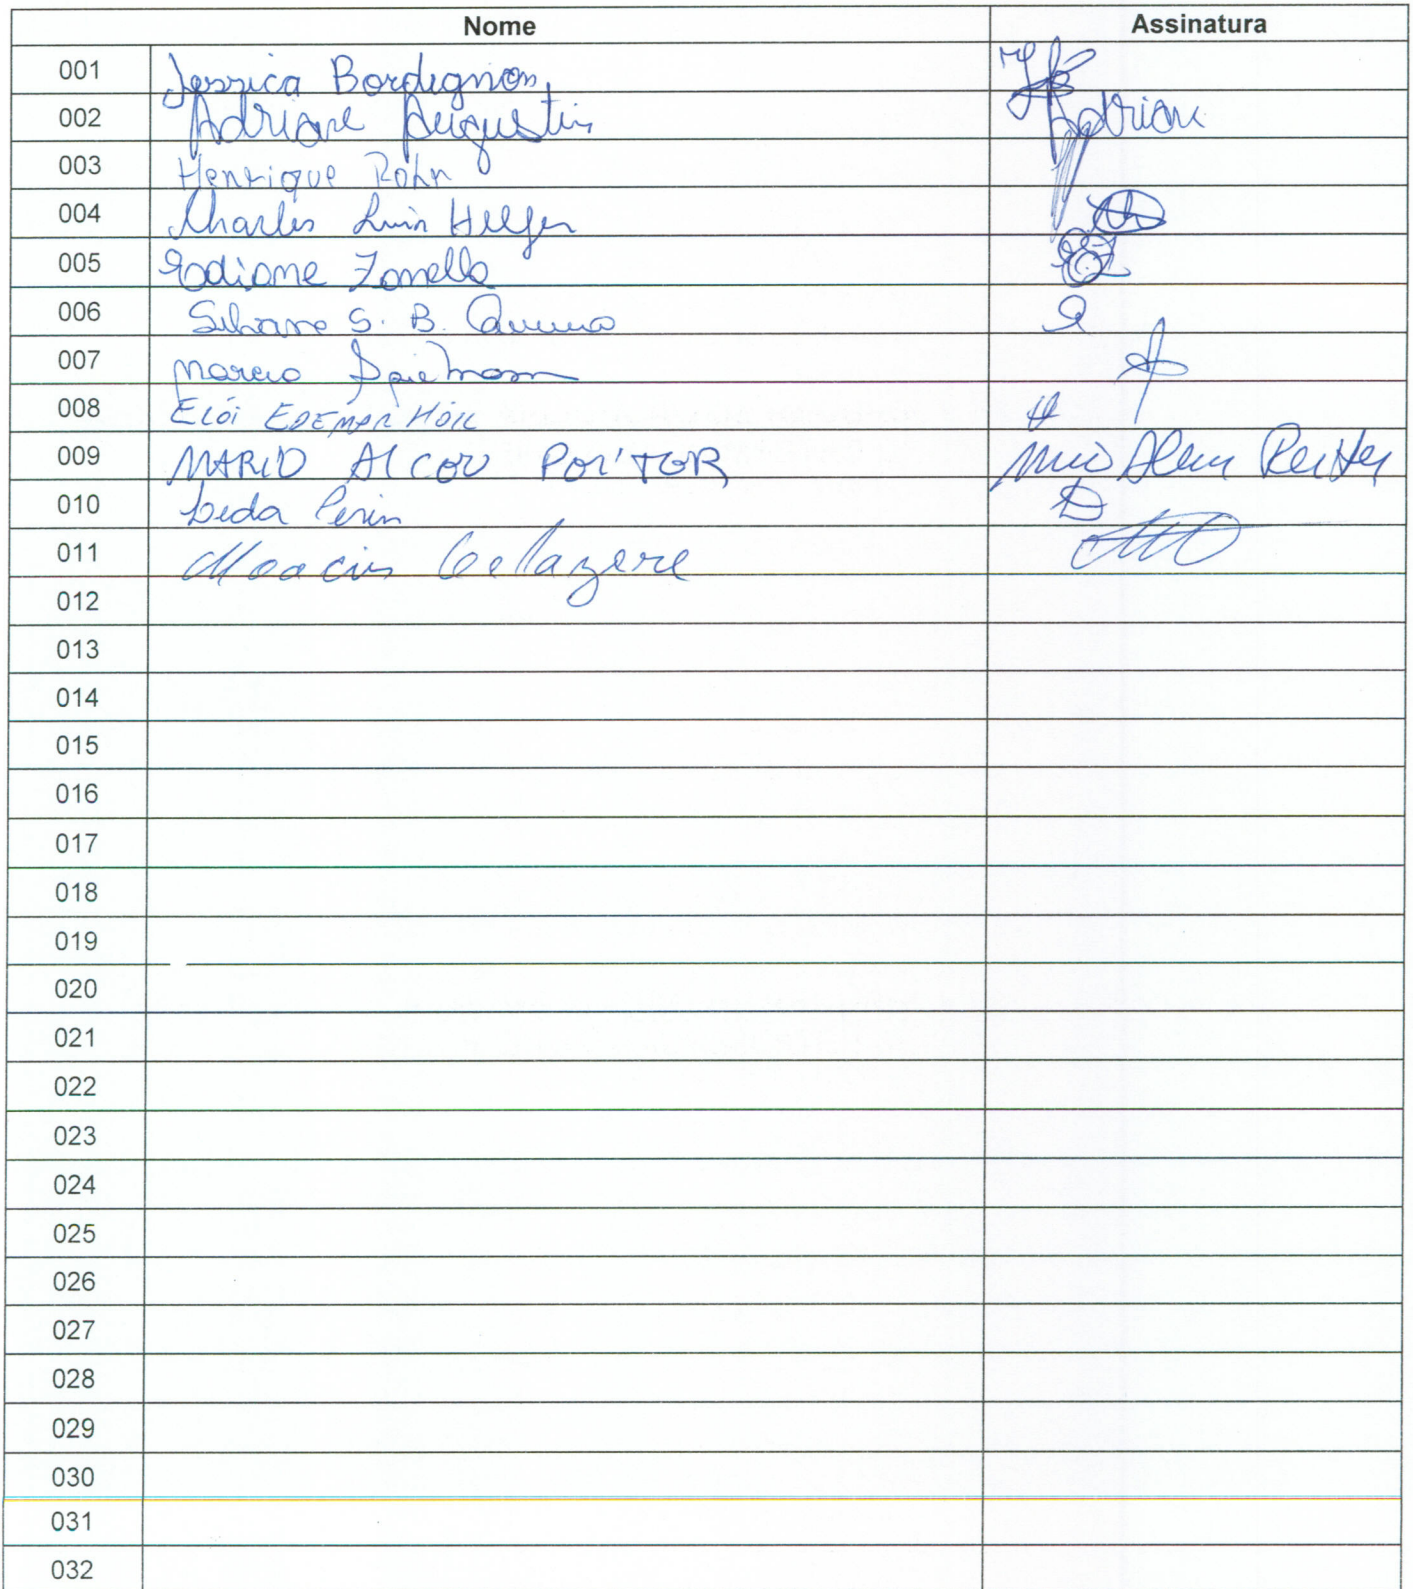 Nome Assinatura
001 Jessica Bordignon
002 Adriane Augustin Adriane
003 Henrique Rohr
004 Charles Luis Helfer
005 Rodiane Zonella
006 Silvane S. B.
007 Marcio
008 Elói Edemar
009 MARIO
010 Leda Perin
011 Moacir Colazere
012
013
014
015
016
017
018
019
020
021
022
023
024
025
026
027
028
029
030
031
032